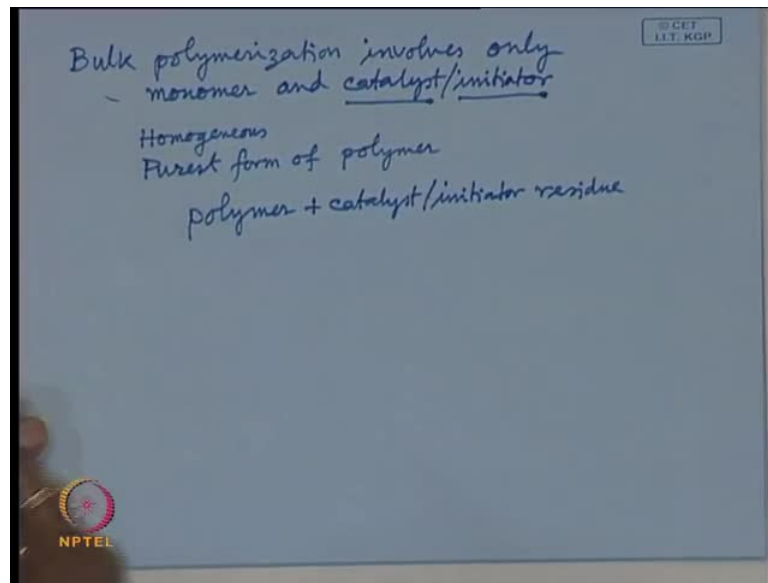 © CET
I.I.T. KGP
Bulk polymerization involves only
monomer and catalyst/initiator
Homogeneous
Purest form of polymer
polymer + catalyst/initiator residue
NPTEL